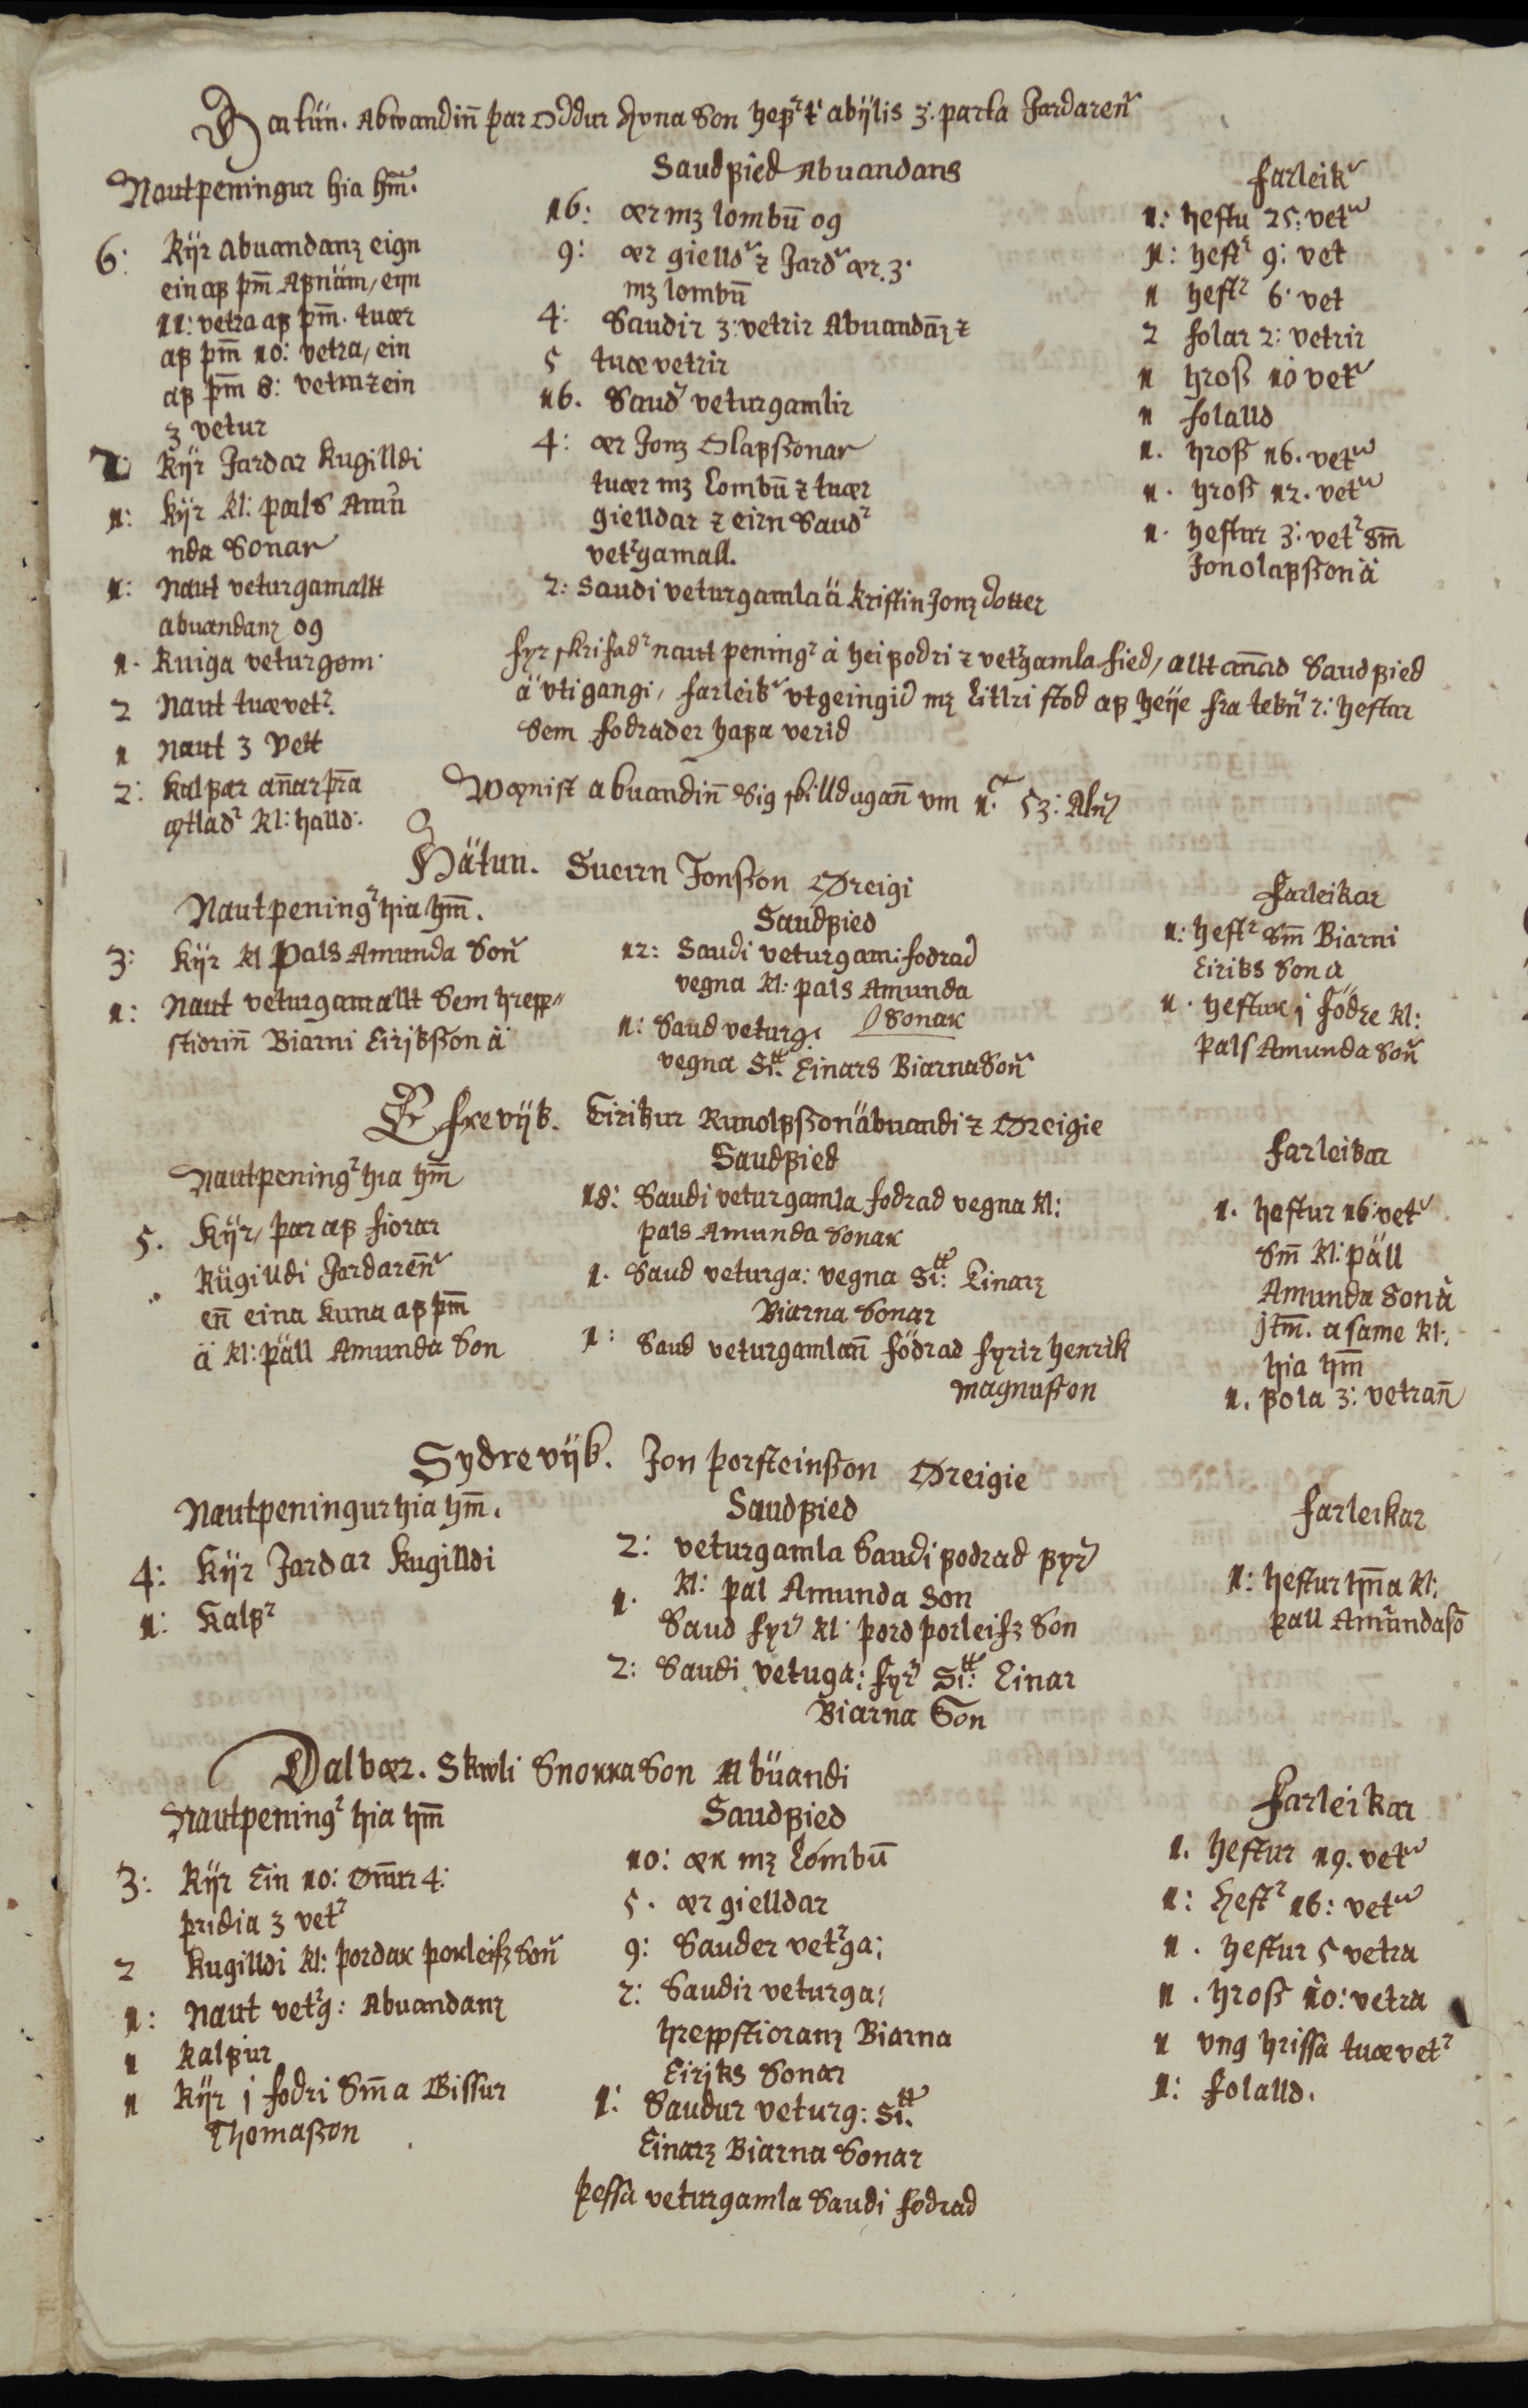 Hatün. Abwandin̄ þar Oddur Arna Son hefr t' abÿlis 3: parta Jardaren̄
Nautpeningur hia hm̄.
6: Kÿr Abuandanz eign
ein af þm̄ Afnäm, ein
11: vetra af þm̄. tuær
af þm̄ 10: vetra, ein
af þm̄ 8: vetra z ein
3 vetur
Kÿr Jardar Kugilldi
1: Kÿr Kl: pals Amu
nda Sonar
1: Naut veturgamallt
abuandanz og
1. Kuiga veturgom
2 Naut tuævetr.
1 Naut 3 Vett
2: Kalfar an̄ar þra
ætladr Kl: halld:
Saudfied Abuandans
16: ær mz lombū og
9: ær gielldr z Jardr ær. 3.
mz lombū
4: Saudir 3: vetrir Abuandanz z
5 tuæ vetrir
16. Saudr veturgamlir
4: ær Jonz Olafssonar
tuær mz Lombū z tuær
gielldar z eirn Saudr
vetrgamall.
2: Saudi veturgamla ä Kristin Jonz dotter
farleikr
1: hestur 25: vetra
1: hestr 9: vet
1 hestr 6: vet
2 folar 2: vetrir
1 hross 10 vetr
1 folalld
1. hross 16. vetra
1. hross 12. vetra
1. hestur 3: vetr Sm̄
Jon olafsson ä
fyrskrifadr nautpeningr ä heifodri z vetrgamla fied, alltt an̄ad Saudfied
ä vtigangi, farleikr vtgeingid mz Litlri stod af heÿe fra tekn̄ 2: hestar
Sem fodrader hafa verid
Wænist abuandin̄ Sig skilldugan̄ vm 1.C 53: Aln̄
Hätun. Sueirn Jonsson Øreigi
Nautpeningr hia hm̄.
3: Kÿr Kl Pals Amunda Son̄
1: Naut veturgamallt Sem hrepp=
stiorin̄ Biarni Eiriksson ä
Saudfied
12: Saudi veturgam: fodrad
vegna Kl: pals Amunda
Sonar
1: Saud veturg:
vegna Si.tt Einars Biarna Son̄
farleikar
1: hestr Sm̄ Biarni
Eiriks Son a
1. hestur j födre Kl:
pals Amunda Son̄
Efrevÿk. Eirikur Runolfsson äbuandi z Øreigie
Nautpeningr hia hm̄
5. Kÿr, þar af fiorar
Kügilldi Jardaren̄
en̄ eina Kuna af þm̄
ä Kl: päll Amunda Son
Saudfied
18: Saudi veturgamla fodrad vegna Kl:
pals Amunda Sonar
1. Saud veturga: vegna Si:tt Einarz
Biarna Sonar
1: Saud veturgamlan̄ födrad fyrir Henrik
Magnusson
farleikar
1. hestur 16: vetr
Sm̄ Kl: päll
Amunda Son ä
jtm̄. a same Kl:
hia hm̄
1. fola 3: vetran̄
Sydrevÿk. Jon þorsteinsson Øreigie
Nautpeningur hia hm̄.
4: Kÿr Jardar Kugilldi
1: Kalfr
Saudfied
2: veturgamla Saudi fodrad fyr
Kl: pal Amunda Son
1. Saud fyr Kl: þord þorleifz Son
2: Saudi vetuga: fyr Si:tt Einar
Biarna Son
farleikar
1: hestur hm̄a Kl:
pall Amundaso
Dalbær. Skwli Snorra Son Abüandi
Nautpeningr hia hm̄
3: Kÿr Ein 10: Øn̄ur 4:
þridia 3 vetr
2 Kugilldi Kl: þordar þorleifz Son̄
1: Naut vetrg: Abuandanz
1 Kalfur
1 Kÿr j fodri Sm̄ a Gissur
Thomasson
Saudfied
10: ær mz Lombū
5. ær gielldar
9: Sauder vetrga:
2: Saudir veturga:
hreppstioranz Biarna
Eiriks Sonar
1: Saudur veturg: Si.tt
Einarz Biarna Sonar
þessa veturgamla Saudi fodrad
Farleikar
1. hestur 19. vetra
1: Hestr 16: vetra
1. hestur 5 vetra
1. hross 10: vetra
1 vng hrissa tuævetr
1: folalld.